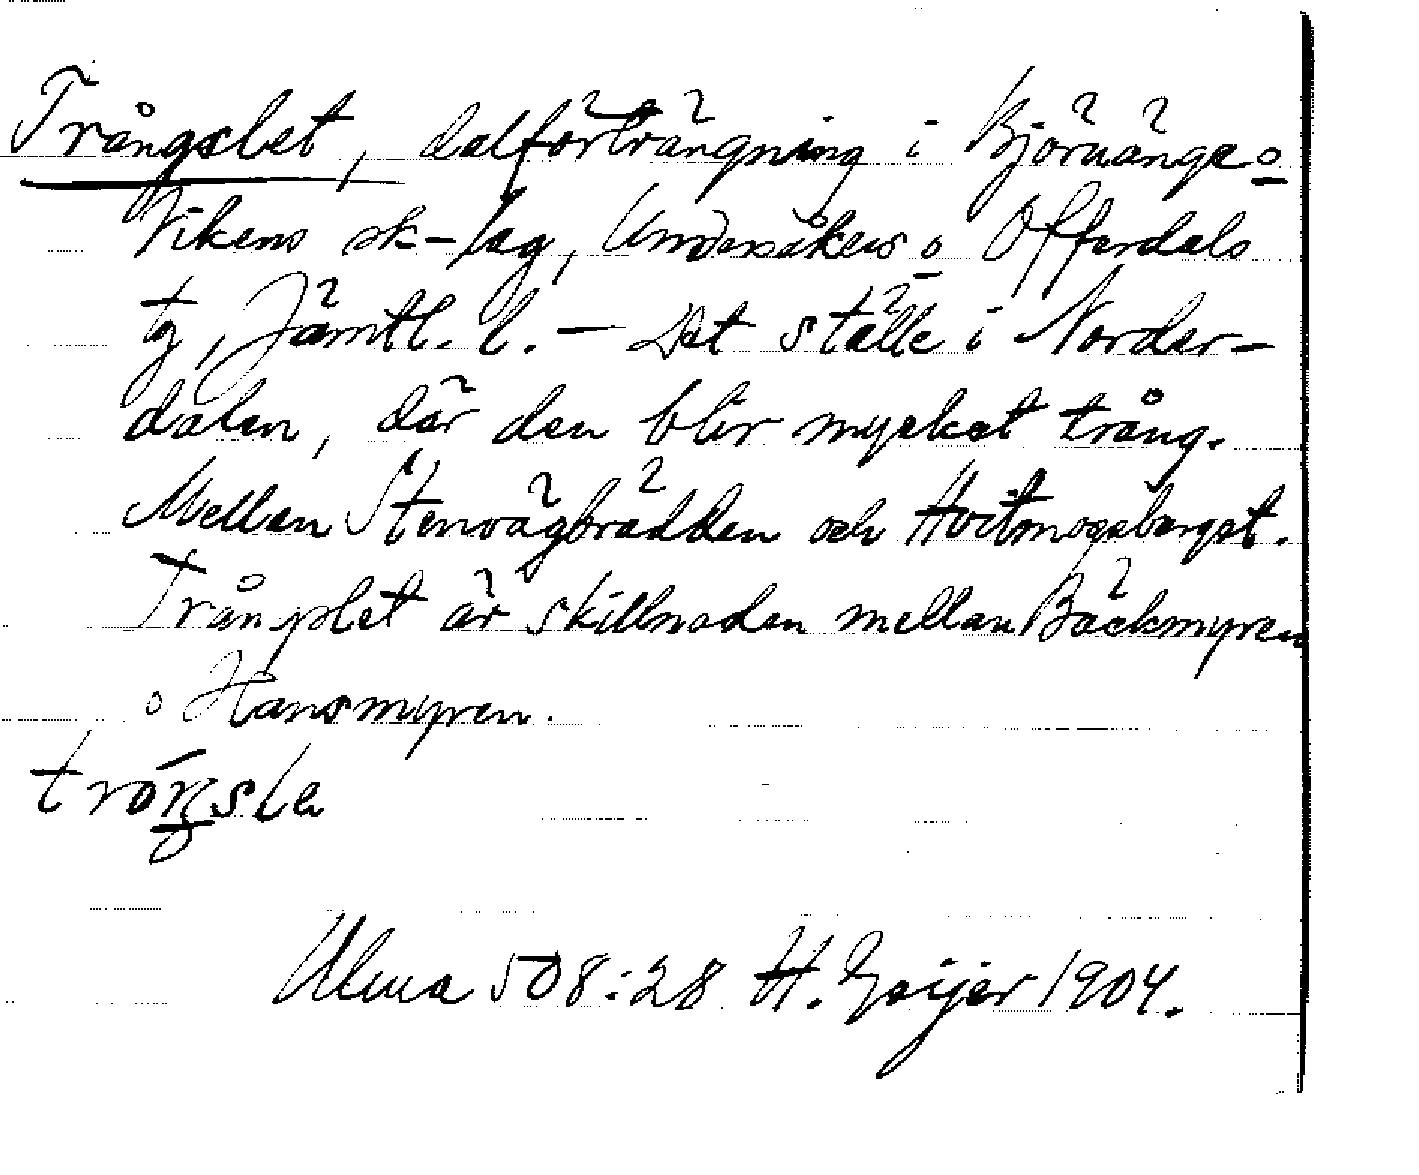 Trångslet, dalförträngning i Björnänge o
Vikens sk-lag, Undersåkers o Offerdals
tg, Jämtl. l. — Det ställe i Norder-
dalen, där den blir mycket trång.
Mellan Stenvågbrädden och Hvitmogsberget.
Trångslet är skillnaden mellan Bäckmyren
o Hansmyren.
Ulma 508:28 H. Geijer 1904.